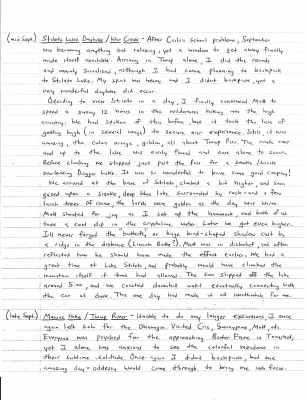 (mid Sept.) Stiletto Lake Daytrike / War Creek - After Cailes school problems, September
was becoming anything but relaxing, yet a window to get away finally
made itself available. Arriving in Twisp alone, I did the rounds
and mainly Sunnyland, although I had come planning to backpack
to Stiletto Lake. My spirit was heavy and I didn't backpack, yet a
very wonderful dayhike did occur.
Deciding to view Stiletto in a day, I finally convinced Matt to
spend a sunny 12 hours in the wilderness hiking into the high
country. We had spoken of this before, but it took the lure of
getting high (in several ways) to secure our experience. Still, it was
amazing, the colors orange, golden, all about Twisp Pass. The route over
and up to the lake was easily found and soon alone to occur.
Before climbing we stopped just past the Pass for a smoke/snack
overlooking Dagger Lake. It was so wonderful to have some good company!
We arrived at the base of Stiletto climbed a bit higher and soon
gazed upon a sizable, deep blue lake, surrounded by rock and a few
larch trees. Of course, the larch were golden as the day were warm.
Matt shouted for joy as I set up the hammock, and both of us
took a cool dip in the crystalline water. Later we got even higher.
I'll never forget the "butterfly" or huge bird-shaped shadow cast by
a ridge in the distance (Lincoln Butte?). Matt was in disbelief, and often
reflected how he should have made the effort earlier. We had a
great time at Lake Stiletto and probably would have climbed the
mountain itself if time had allowed. The sun slipped off the lake
around 5:00, and we coasted downhill until eventually connecting with
the car at dusk. This one day had made it all worthwhile for me.
(late Sept.) Hike / Twisp River - Unable to do any longer excursions, I once
again left solo for the Okanogan. Visited Cris, Sunnypine, Matt, etc.
Everyone was psyched for the approaching Barter Faire in Tonasket,
yet I alone was anxious to see the colorful meadows in
their sublime solitude. Once again I didn't backpack, but one
amazing day-oddessy would come through to bring me into focus.